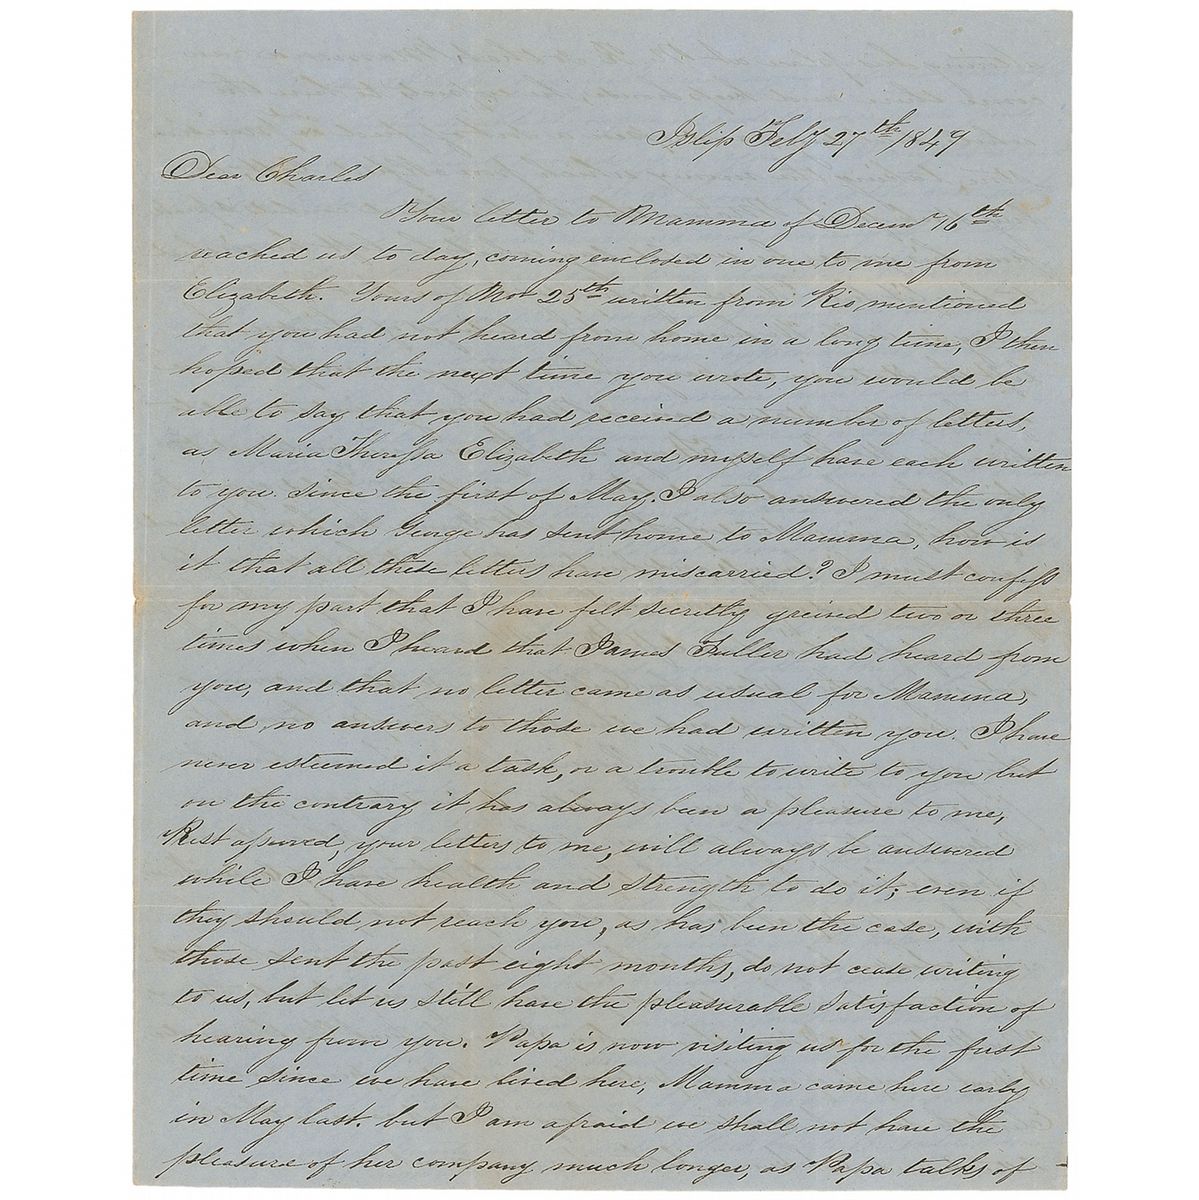 Islip Feby 27th 1849
Dear Charles
Your letter to Mamma of Decemr 16th
reached us to day, coming enclosed in one to me from
Elizabeth. Yours of Nov 25th written from Rio mentioned
that you had not heard from home in a long time, I then
hoped that the next time you wrote, you would be
able to say that you had received a number of letters,
as Maria Theressa Elizabeth and myself have each written
to you since the first of May. I also answered the only
letter which George has sent home to Mamma, how is
it that all these letters have miscarried? I must confess
for my part that I have felt secretly greived two or three
times when I heard that James Fuller had heard from
you, and that no letter came as usual for Mamma,
and no answers to those we had written you. I have
never esteemed it a task, or a trouble to write to you but
on the contrary it has always been a pleasure to me,
Rest assured, your letters to me, will always be answered
while I have health and strength to do it; even if
they should not reach you, as has been the case, with
those sent the past eight months, do not cease writing
to us, but let us still have the pleasurable satisfaction of
hearing from you. Papa is now visiting us for the first
time since we have lived here, Mamma came here early
in May last. but I am afraid we shall not have the
pleasure of her company much longer, as Papa talks of